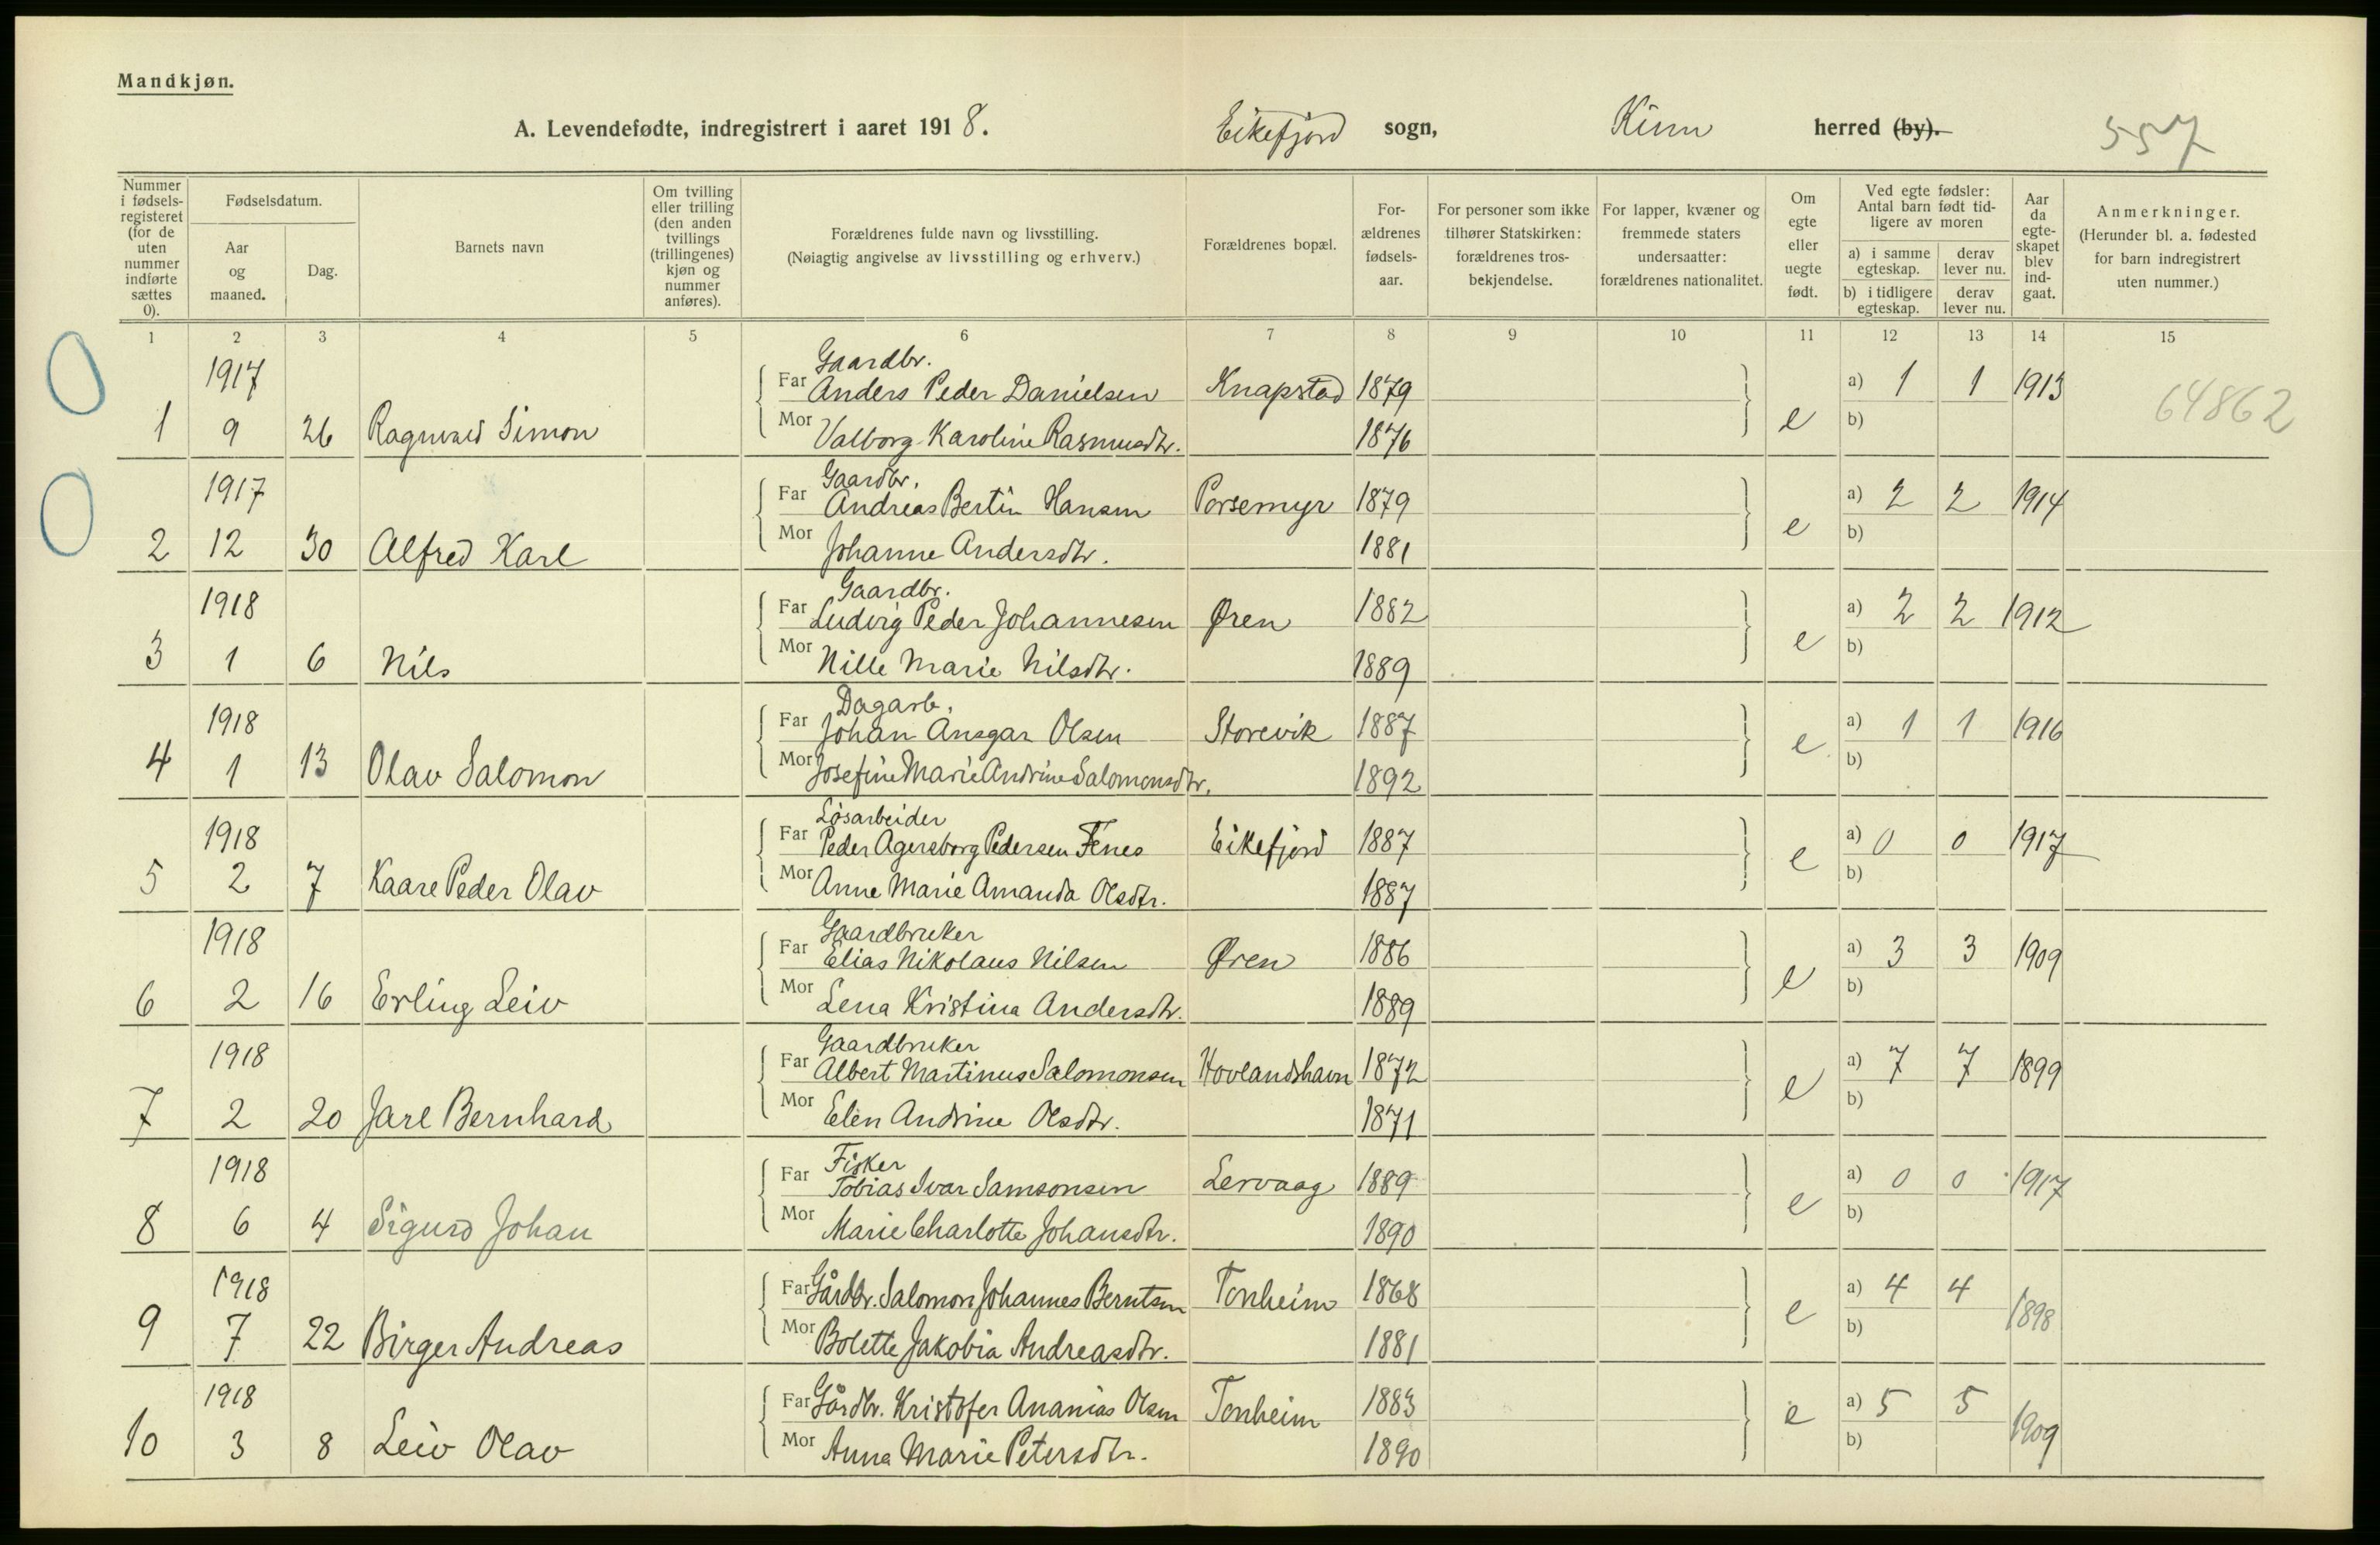 Mandkjøn.
A. Levendefødte, indregistrert i aaret 1918. Eikefjord sogn, Kinn herred (by). 557
Nummer i fødselsregisteret (for de uten nummer indførte sættes 0). Fødselsdatum. Aar og maaned. Dag. Barnets navn Om tvilling eller trilling (den anden tvillings (trillingenes) kjøn og nummer anføres). Forældrenes fulde navn og livsstilling. (Nøiagtig angivelse av livsstilling og erhverv.) Forældrenes bopæl. Forældrenes fødselsaar. For personer som ikke tilhører Statskirken: forældrenes trosbekjendelse. For lapper, kvæner og fremmede staters undersaatter: forældrenes nationalitet. Om egte eller uegte født. Ved egte fødsler: Antal barn født tidligere av moren a) i samme egteskap. derav lever nu. b) i tidligere egteskap. derav lever nu. Aar da egteskapet blev indgaat. Anmerkninger. (Herunder bl. a. fødested for barn indregistrert uten nummer.)
1 2 3 4 5 6 7 8 9 10 11 12 13 14 15
Gaardbr.
1917 Far Anders Peder Danielsen Knapstad 1879 a) 1 1 1913 64862
1 9 26 Ragnvald Simon Mor Valborg Karoline Rasmusdtr. 1876 e b)
Gaardbr.
1917 Far Andreas Bertin Hansen Porsemyr 1879 a) 2 2 1914
2 12 30 Alfred Karl Mor Johanne Andersdtr. 1881 e b)
Gaardbr.
1918 Far Ludvig Peder Johannesen Øren 1882 a) 2 2 1912
3 1 6 Nils Mor Nille Marie Nilsdtr. 1889 e b)
Dagarb.
1918 Far Johan Ansgar Olsen Storevik 1887 a) 1 1 1916
4 1 13 Olav Salomon Mor Josefine Marie Andrine Salomonsdtr. 1892 e b)
Løsarbeider
1918 Far Peder Agersborg Pedersen Fenes Eikefjord 1887 a) 0 0 1917
5 2 7 Kaare Peder Olav Mor Anne Marie Amanda Olsdtr. 1887 e b)
Gaardbruker
1918 Far Elias Nikolaus Nilsen Øren 1886 a) 3 3 1909
6 2 16 Erling Leiv Mor Lena Kristina Andersdtr. 1889 e b)
Gaardbruker
1918 Far Albert Martinus Salomonsen Hovlandshavn 1872 a) 7 7 1899
7 2 20 Jarl Bernhard Mor Elen Andrine Olsdtr. 1871 e b)
Fisker
1918 Far Tobias Ivar Samsonsen Lervaag 1889 a) 0 0 1917
8 6 4 Sigurd Johan Mor Marie Charlotte Johansdtr. 1890 e b)
1918 Far Gårdbr. Salomon Johannes Berntsen Tonheim 1868 a) 4 4 1898
9 7 22 Birger Andreas Mor Bolette Jakobia Andreasdtr. 1881 e b)
1918 Far Gårdbr. Kristofer Ananias Olsen Tonheim 1883 a) 5 5 1909
10 3 8 Leiv Olav Mor Anna Marie Petersdtr. 1890 e b)